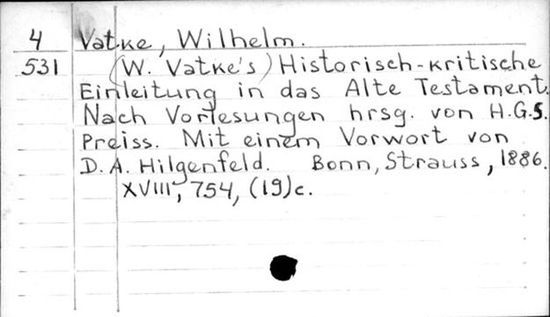 4 Vatke, Wilhelm.
531 (W. Vatke's) Historisch-kritische
Einleitung in das Alte Testament.
Nach Vorlesungen hrsg. von H.G.S.
Preiss. Mit einem Vorwort von
D. A. Hilgenfeld. Bonn, Strauss, 1886.
XVIII, 754, (19)c.